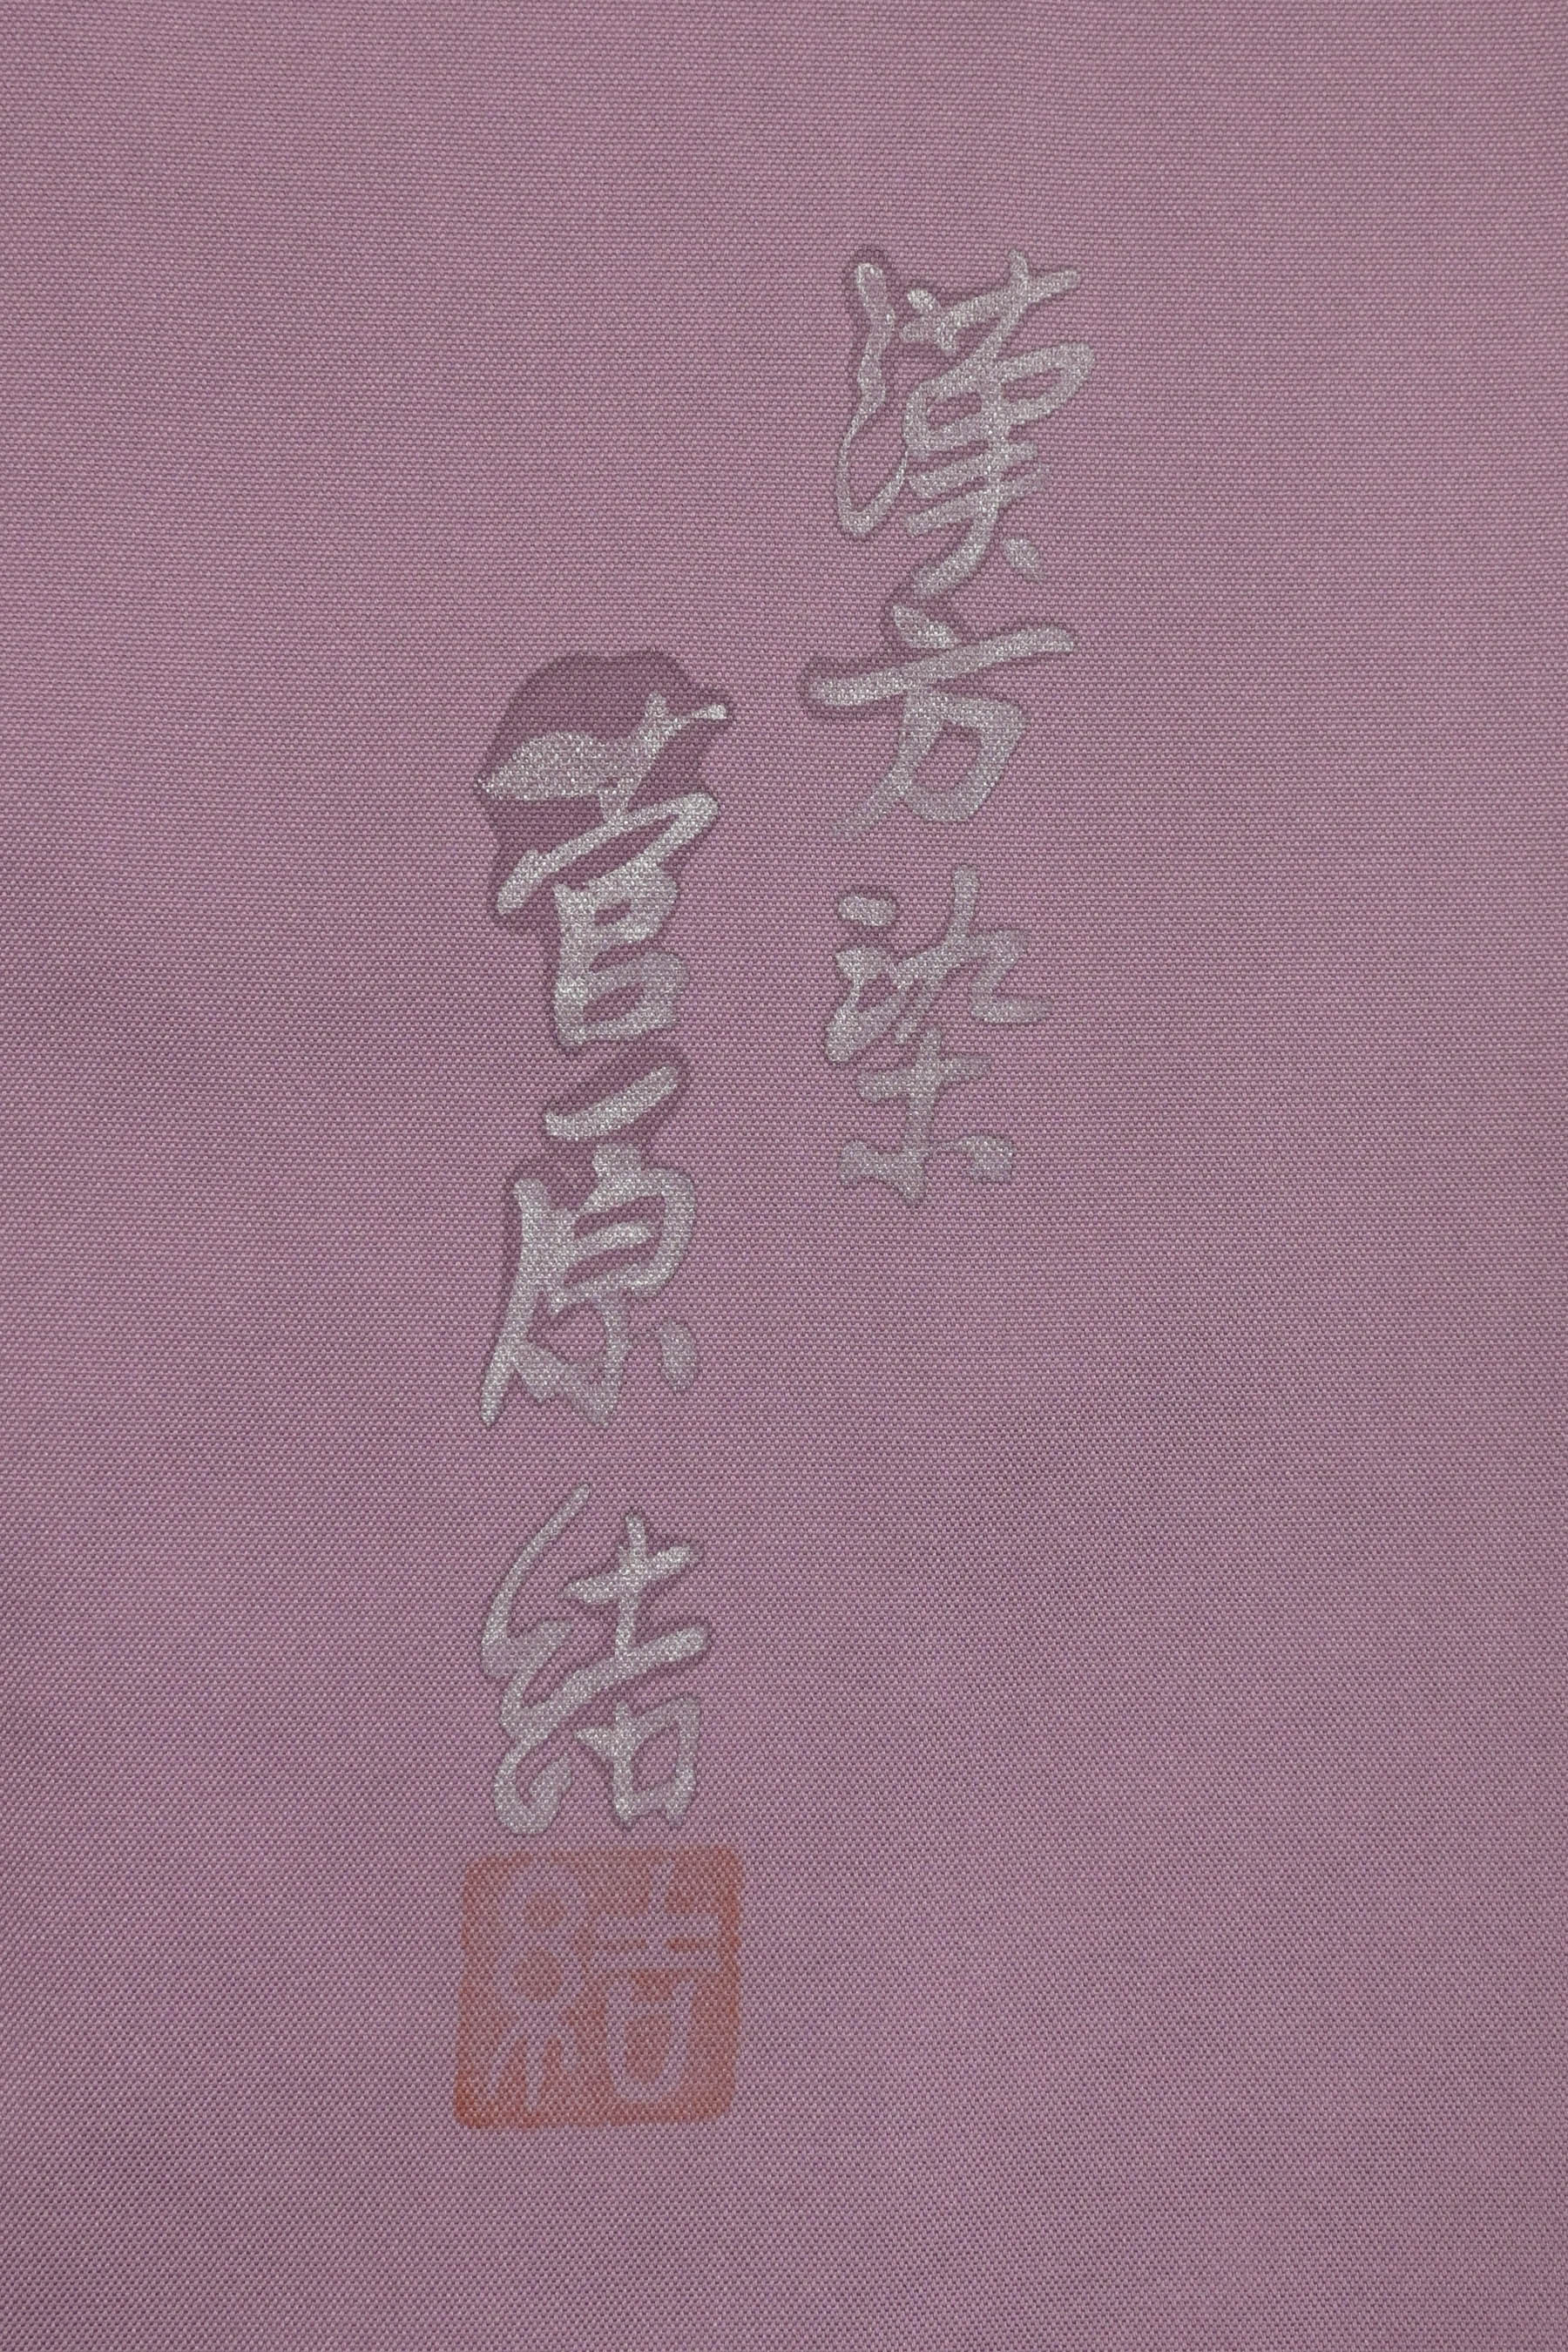 漢方染
菅原結
結